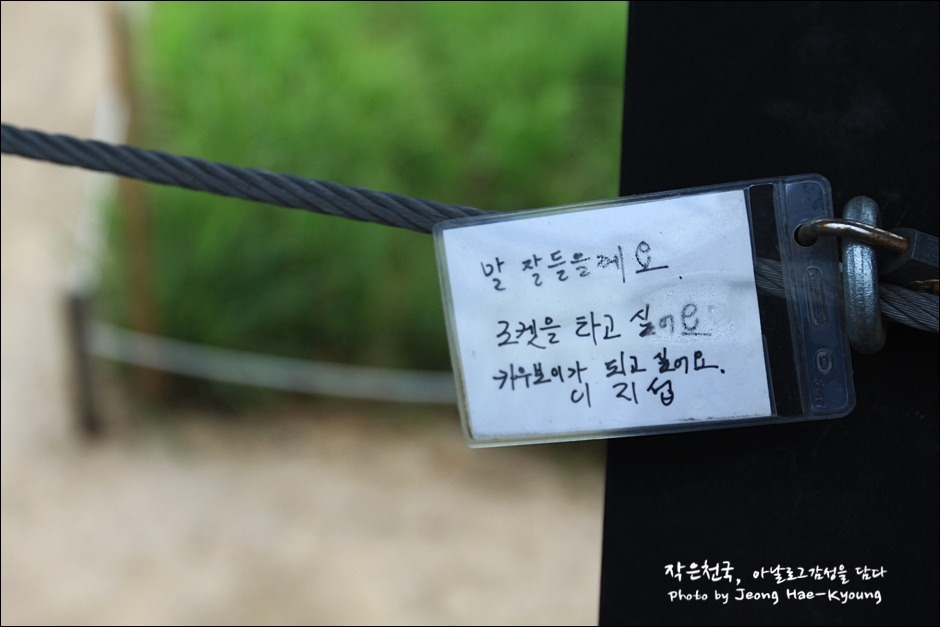 말 잘들을께요.
로켓을 타고 싶어요
카우보이가 되고 싶어요.
이지섭
작은천국, 아날로그감성을 담다
Photo by Jeong Hae-Kyoung